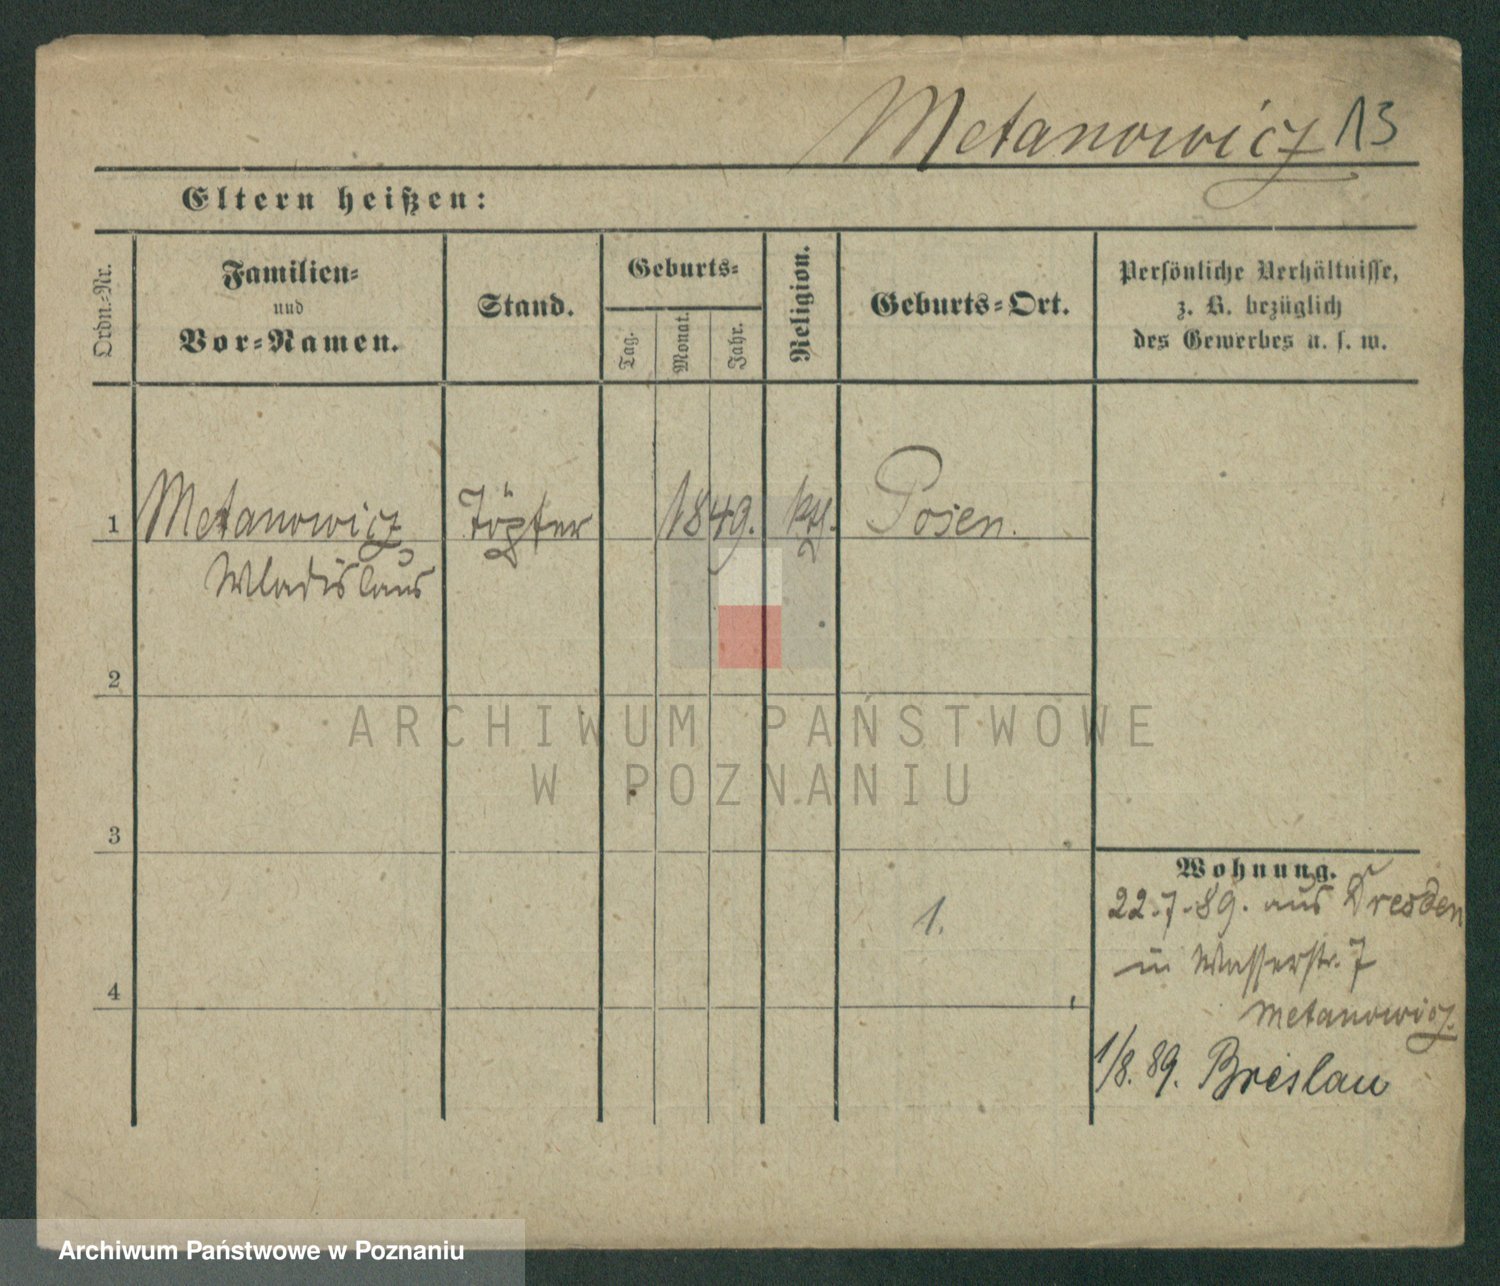 Metanowicz 13
Eltern heißen:
Ordn.-Nr.
Familien-
und
Vor-Namen.
Stand.
Geburts-
Tag.
Monat.
Jahr.
Religion.
Geburts-Ort.
Persönliche Verhältnisse,
z. B. bezüglich
des Gewerbes u. s. w.
1 Metanowicz Töpfer 1849. kth. Posen.
Wladislaus
2
ARCHIWUM PAŃSTWOWE
W POZNANIU
3
Wohnung.
22.7.89. aus Dresden
1.
in Wasserstr. 7
4
Metanowicz.
1/8. 89. Breslau
Archiwum Państwowe w Poznaniu